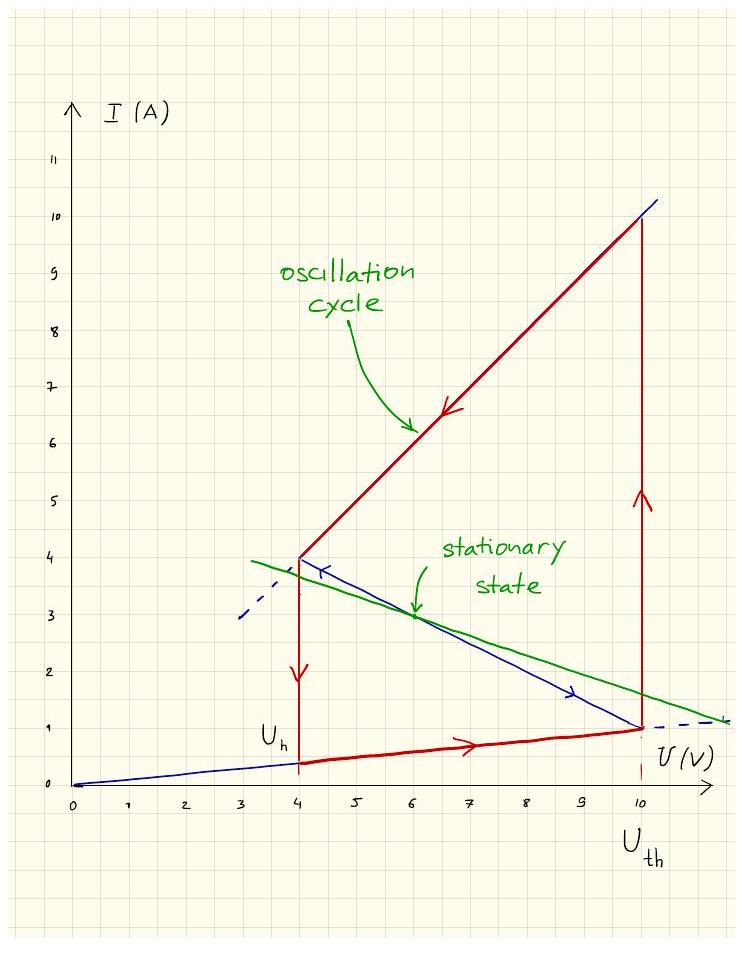 I (A)
11
10
9
8
7
6
5
4
3
2
1
0
oscillation
cycle
stationary
state
U_h
U (V)
0 1 2 3 4 5 6 7 8 9 10
U_th